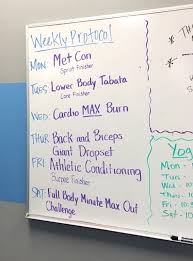 Weekly Protocol
MON: Met Con
Sprint Finisher
TUES: Lower Body Tabata
Core Finisher
WED: Cardio MAX Burn
THUR: Back and Biceps
Giant Dropset
FRI: Athletic Conditioning
Burpee Finisher
SAT: Full Body Minute Max Out
Challenge
Yog
Mon -
Tue -
Wed - 10
Thur - 
Fri - 10:
Sat - 10